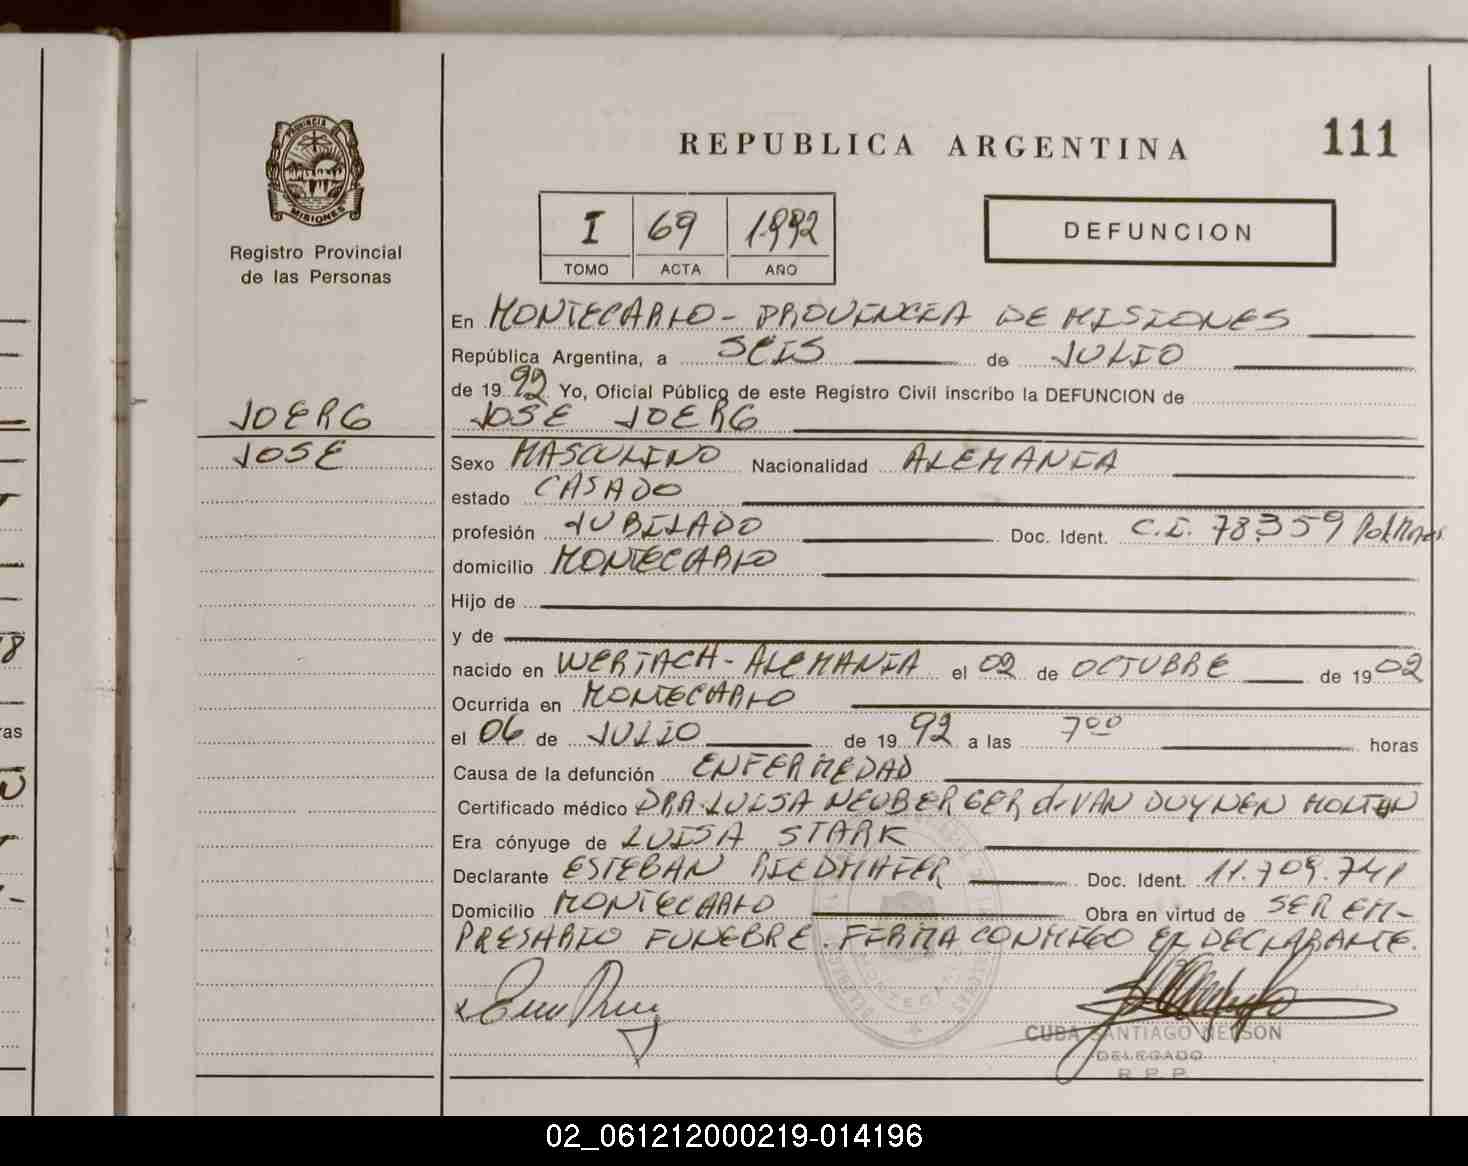 REPUBLICA ARGENTINA
111
PROVINCIA DE
MISIONES
Registro Provincial
de las Personas
I 69 1992
TOMO ACTA AÑO
DEFUNCION
En MONTECARLO - PROVINCIA DE MISIONES
República Argentina, a SEIS de JULIO
de 1992 Yo, Oficial Público de este Registro Civil inscribo la DEFUNCION de
JOERG
JOSE JOERG
JOSE
Sexo MASCULINO Nacionalidad ALEMANIA
estado CASADO
profesión JUBILADO Doc. Ident. C.I. 78.359 Pol. Mnes.
domicilio MONTECARLO
Hijo de
y de
nacido en WERTACH - ALEMANIA el 02 de OCTUBRE de 1902
Ocurrida en MONTECARLO
el 06 de JULIO de 1992 a las 700 horas
Causa de la defunción ENFERMEDAD
Certificado médico DRA. LUISA NEUBERGER d. VAN DUYNEN
Era cónyuge de LUISA STARK
Declarante ESTEBAN RIEDMAIER Doc. Ident. 11.709.741
Domicilio MONTECARLO Obra en virtud de SER EM-
PRESARIO FUNEBRE. FIRMA CONMIGO EL DECLARANTE.
CUBA SANTIAGO NELSON
DELEGADO
R.P.P.
02_061212000219-014196